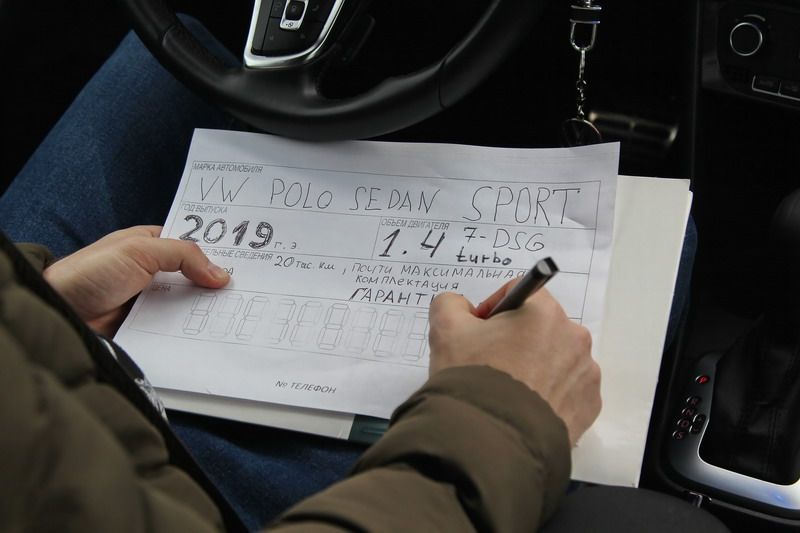 МАРКА АВТОМОБИЛЯ
VW POLO SEDAN SPORT
ГОД ВЫПУСКА
2019 г. э
ОБЪЕМ ДВИГАТЕЛЯ
1.4 7-DSG
turbo
СВЕДЕНИЯ 20 тас. км, почти максимальная
комплектация
ЦЕНА
№ ТЕЛЕФОН
P
R
N
D
S